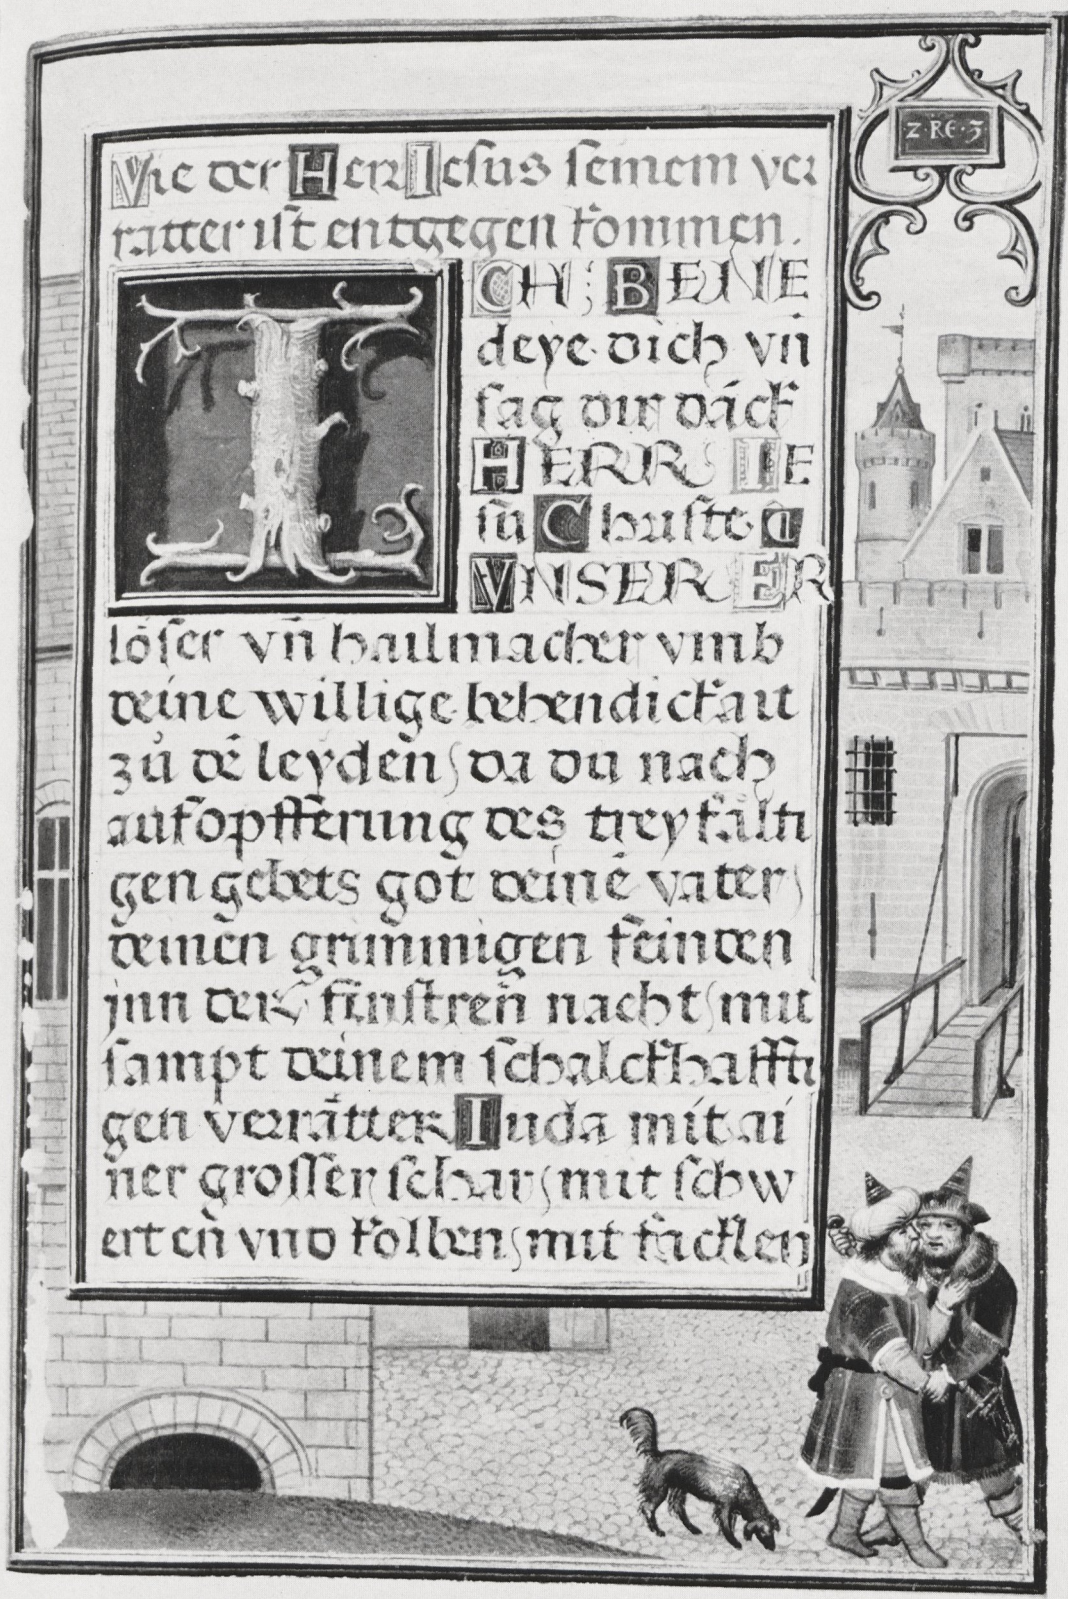 Z·RE·3
Wie der Herr Jesus seinem ver
ratter ist entgegen kommen.
ICH; BENE
deye dich vñ
sag dir dāck
HERR IE
su Christe
VNSER ER
löser vñ hailmacher vmb
deine willige behendickait
zů dē leyden, da du nach
aufopfferung des treyfälti
gen gebets got deinē vater,
deinen grimmigen feinden
jnn der finstren nacht, mit
sampt deinem schalckhaffti
gen verrätter Juda mit ai
ner grosser schar, mit schw
erten vnd kolben, mit facklen